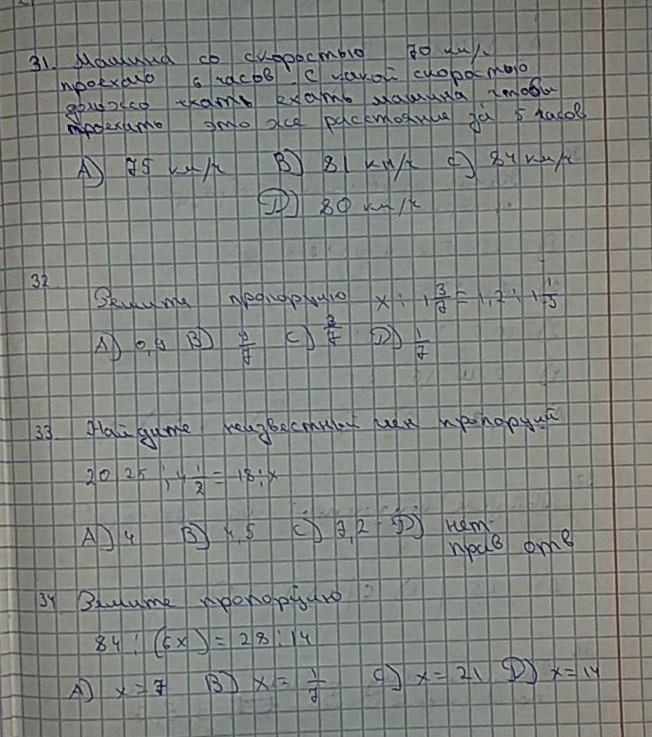 31. Машина со скоростью 70 км/ч
проехало 6 часов С какой скоростью
должно ехать машина чтобы
проехать это же расстояние за 5 часов
A) 75 км/ч B) 81 км/ч C) 84 км/ч
D) 80 км/ч
32
Решите пропорцию x : 1 3/7 = 1,2 :
A) B) C) 3/7 D) 1/7
33. Найдите неизвестный член пропорций
20,25 : 4 1/2 = 18 : x
A) 4 B) 4,5 C) 7,2 D) нет
прав отв
34 Решите пропорцию
84 : (6x) = 28 : 14
A) x = 7 B) x = 1/7 C) x = 21 D) x = 14